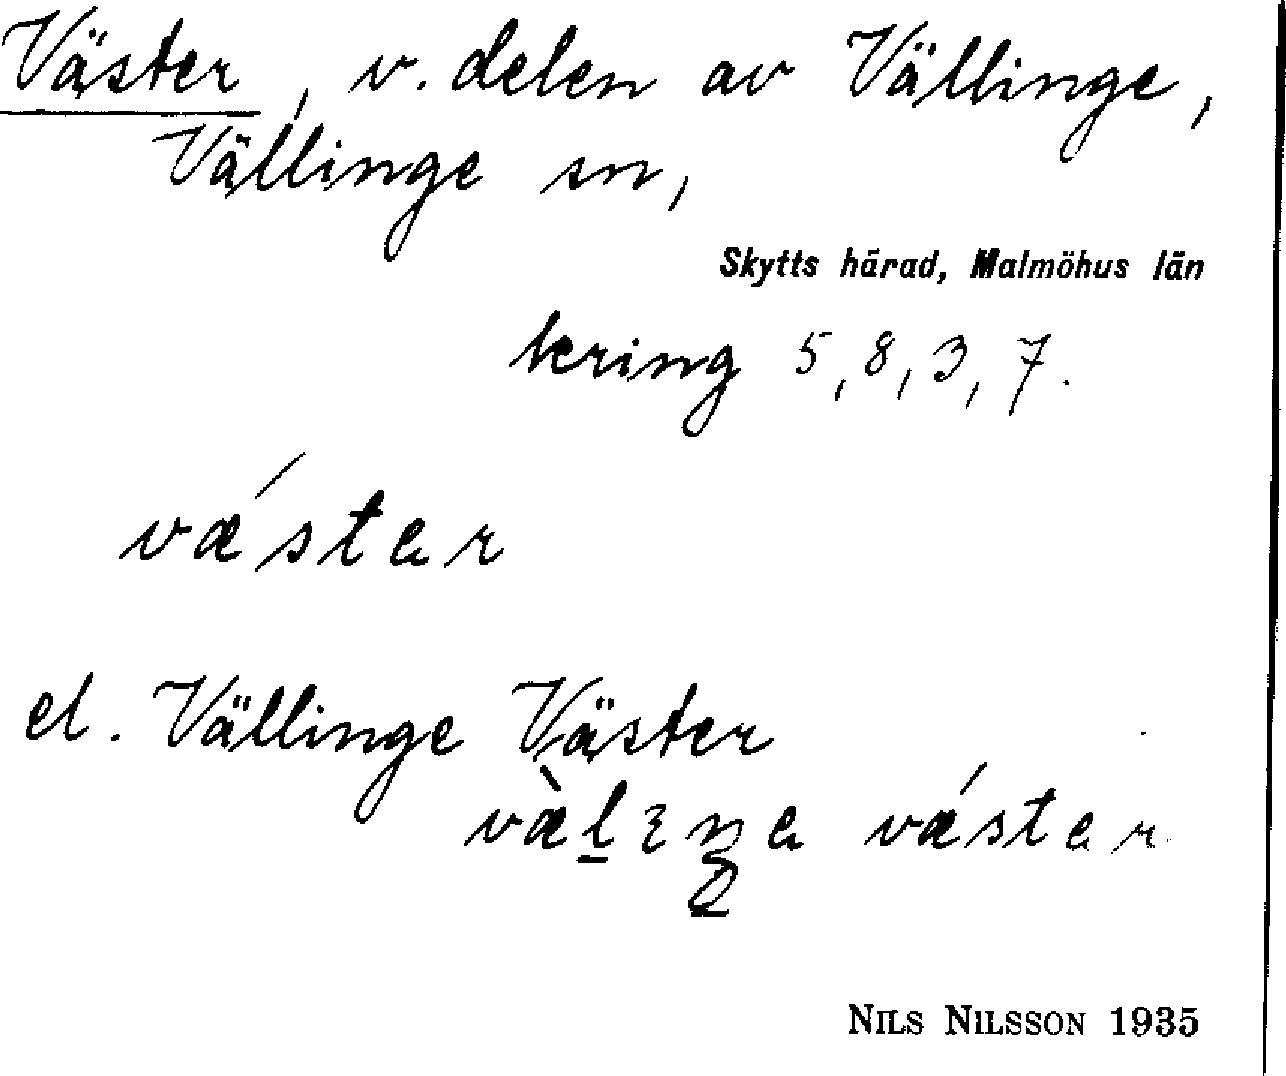 Väster, v. delen av Vällinge,
Vällinge sn,
Skytts härad, Malmöhus län
kring 5, 8, 3, 7.
væ´star
el. Vällinge Väster
væ´star
NILS NILSSON 1935